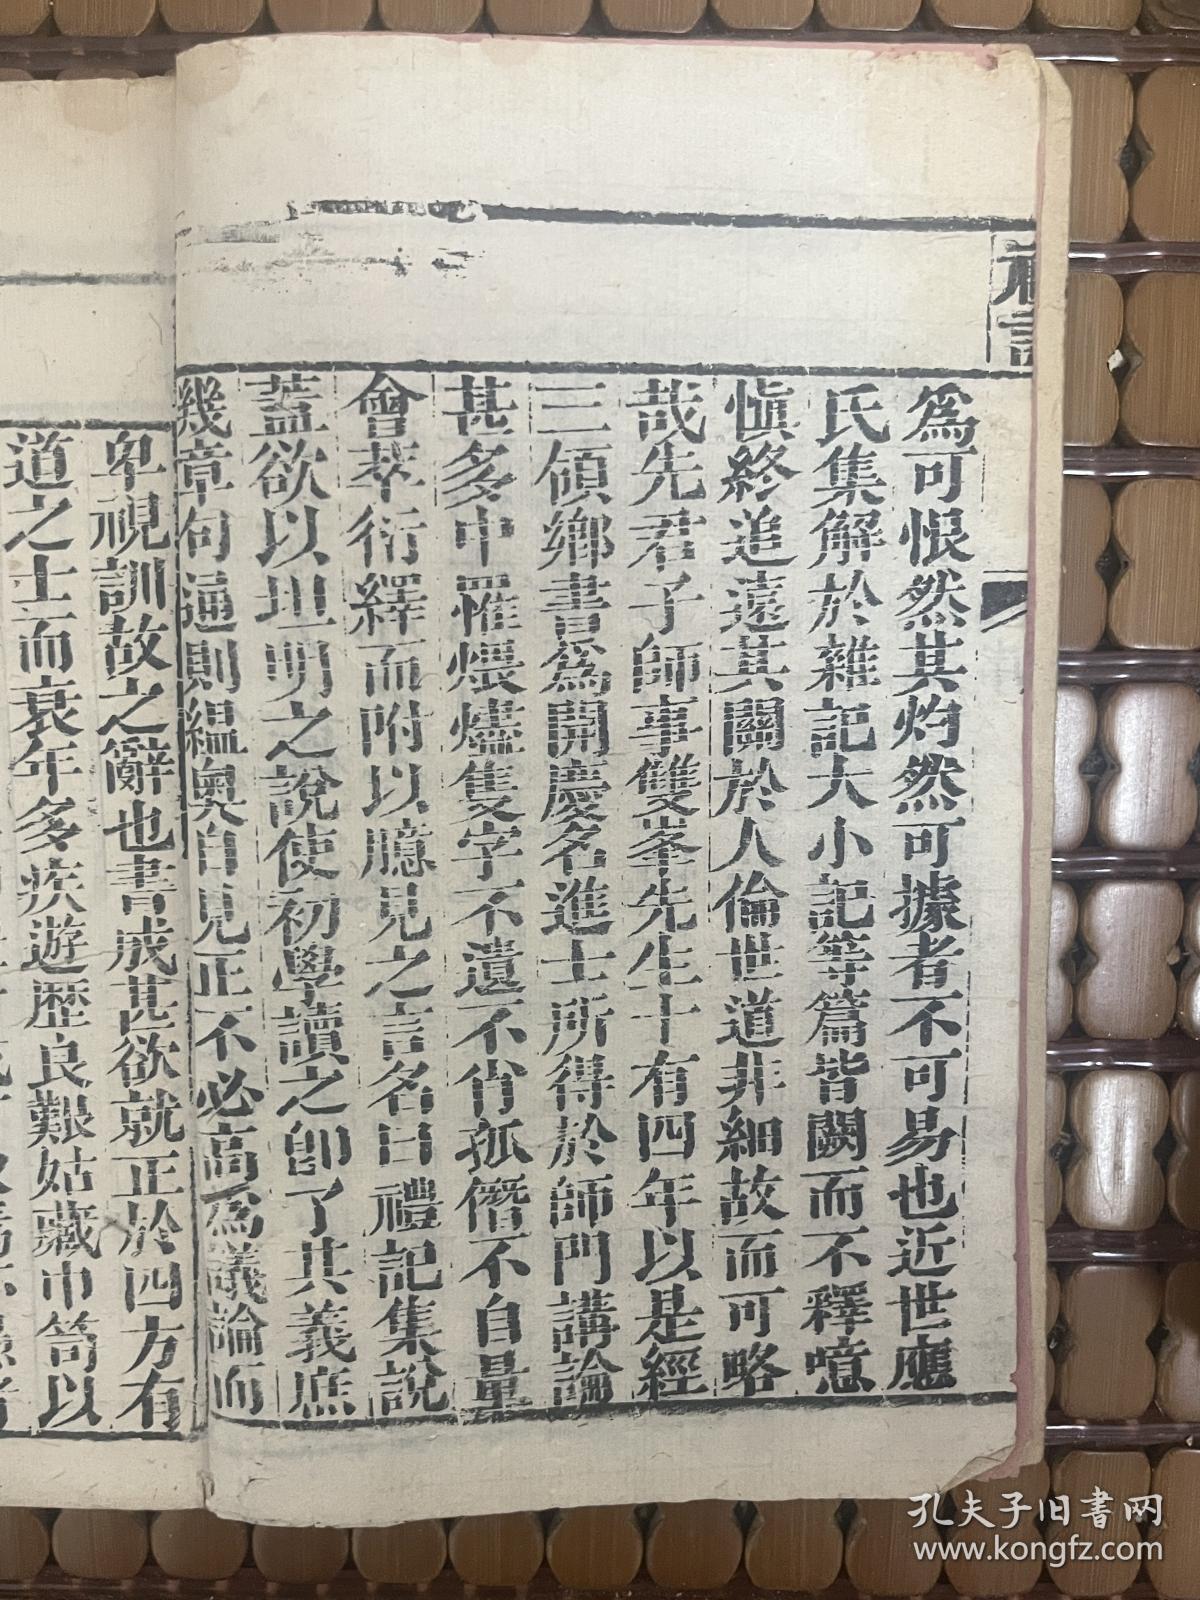 爲可恨然其灼然可據者不可易也近世應
氏集解於雜記大小記等篇皆闕而不釋噫
愼終追遠其關於人倫世道非細故而可略
哉先君子師事雙峯先生十有四年以是經
三領鄉書爲開慶名進士所得於師門講論
甚多中罹煨燼隻字不遺不肖孤僭不自量
會萃衍繹而附以臆見之言名曰禮記集說
蓋欲以坦明之說使初學讀之卽了其義庶
幾章句通則縕奧自見正不必高爲議論而
卑視訓故之辭也書成甚欲就正於四方有
道之士而衰年多疾遊歷良艱姑藏巾笥以
孔夫子旧书网
www.kongfz.com